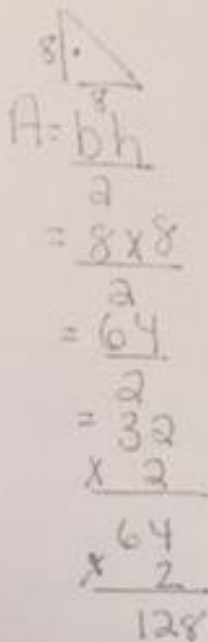 8
8
A = bh
2
= 8 x 8
2
= 64
2
= 32
x 2
64
x 2
128